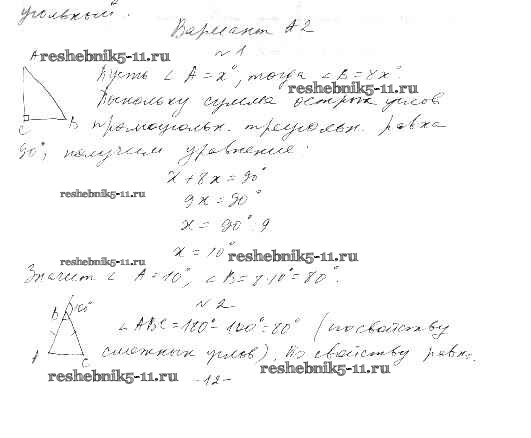 угольный.
Вариант А2
№1
A reshebnik5-11.ru
Пусть ∠A = x°, тогда ∠B = 8x°.
reshebnik5-11.ru
Поскольку сумма острых углов
C B прямоугольн. треугольн. равна
90°, получим уравнение:
x + 8x = 90°
reshebnik5-11.ru
9x = 90°
x = 90° : 9
x = 10°
reshebnik5-11.ru reshebnik5-11.ru
Значит ∠ A = 10°, ∠B = 8·10° = 80°.
№2
B
∠ABC = 180° - 100° = 80° (по свойству
A C смежных углов). По свойству равн.
reshebnik5-11.ru -12- reshebnik5-11.ru